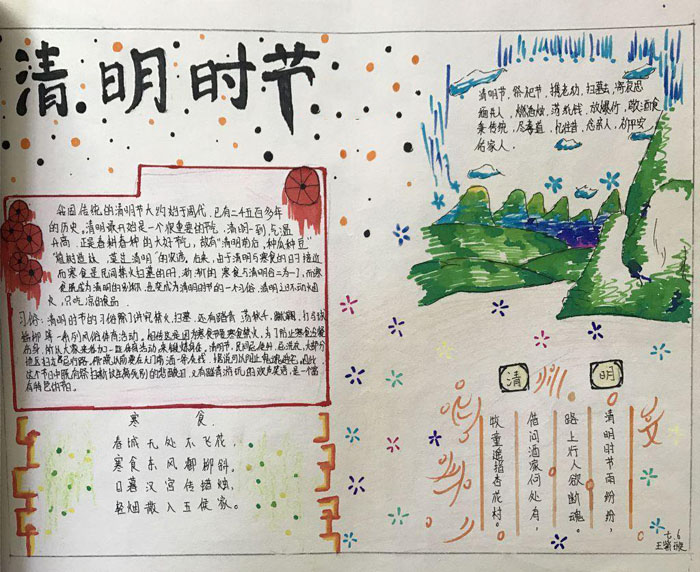 清明时节
我国传统的清明节大约始于周代,已有二千五百多年
的历史。清明最开始是一个很重要的节气,清明一到,气温
升高,正是春耕春种的大好时节,故有"清明前后,种瓜种豆"
"植树造林,莫过清明"的农谚。后来,由于清明与寒食的日子接近
而寒食是民间禁火扫墓的日子,渐渐的寒食与清明合二为一了,而寒
食既成为清明的别称,也变成为清明时节的一个习俗,清明之日不动烟
火,只吃凉的食品
习俗:清明节的习俗除了讲究禁火、扫墓,还有踏青、荡秋千、蹴鞠、打马球
插柳等一系列风俗体育活动。相传这是因为寒食节要寒食禁火,为了防止寒食冷餐
伤身,所以大家来参加一些体育活动,来锻炼身体。
这个节日中既有祭扫新坟生离死别的悲酸泪,又有踏青游玩的欢声笑语,是一个富
有特色的节日。
寒食
春城无处不飞花,
寒食东风御柳斜。
日暮汉宫传蜡烛,
轻烟散入五侯家。
清明节,祭祀节,
烟共人,燃香烛,荡秋千,放爆竹,敬酒食
秉传统,尽孝道,忆往昔,念亲人,祈平安
佑家人。
清明
清明时节雨纷纷,
路上行人欲断魂。
借问酒家何处有,
牧童遥指杏花村。
七.6